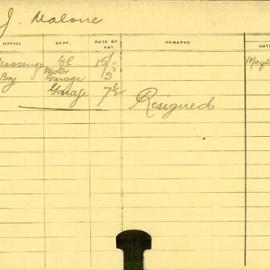 J. Malone
OFFICE DEPT. RATE OF PAY REMARKS DATE
Messenger Gl 15/-
Boy Motor Garage
Garage 7½ Resigned